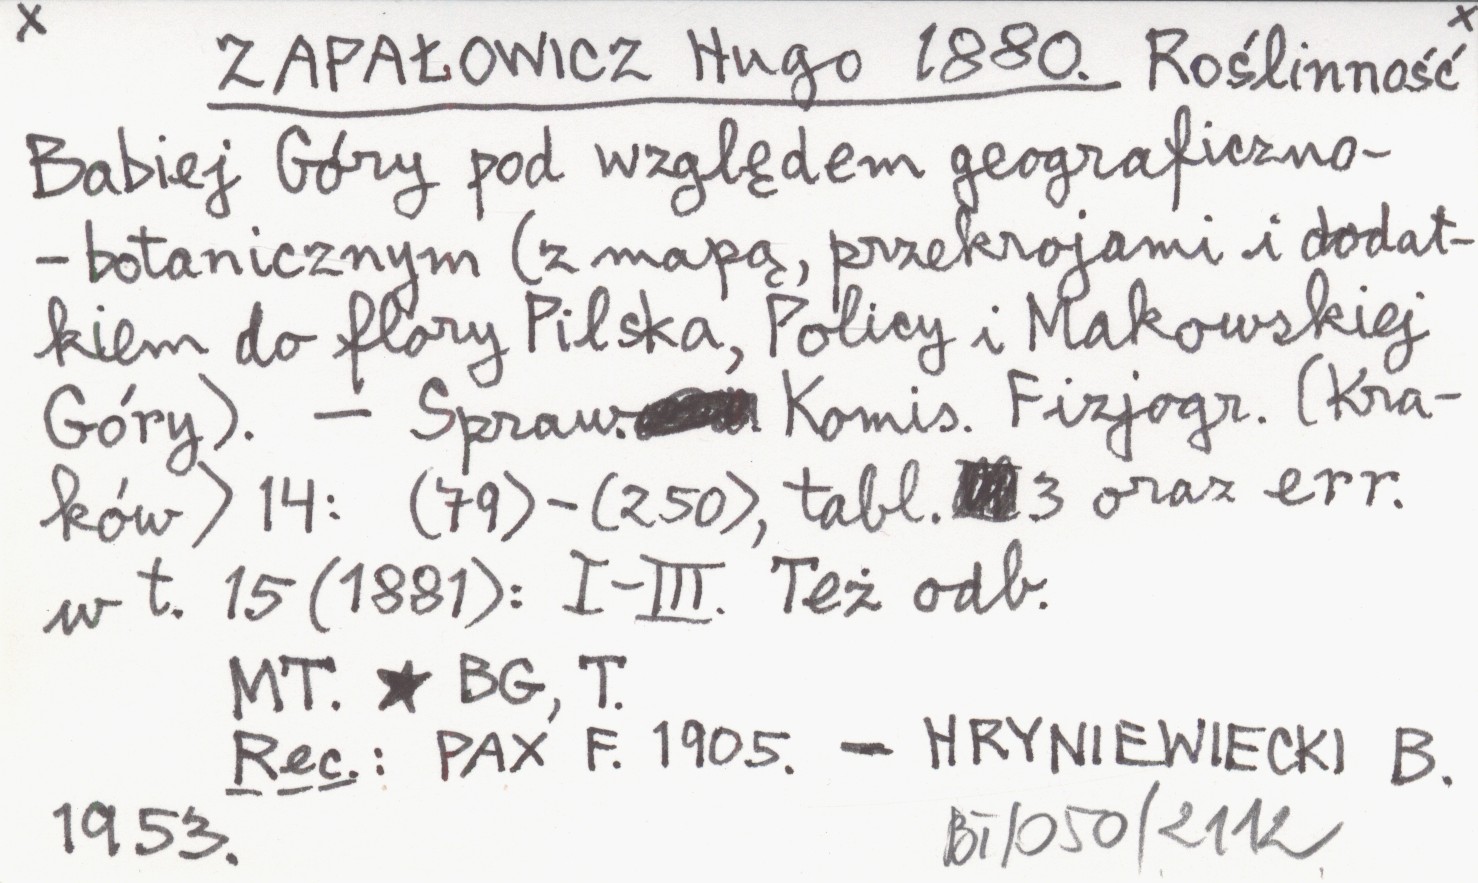 x x
ZAPAŁOWICZ Hugo 1880. Roślinność
Babiej Góry pod względem geograficzno-
-botanicznym (z mapą, przekrojami i dodat-
kiem do flory Pilska, Policy i Makowskiej
Góry). — Spraw. Komis. Fizjogr. (Kra-
ków) 14: (79)-(250), tabl. 3 oraz err.
w t. 15 (1881): I-III. Też odb.
MT. ★ BG, T.
Rec.: PAX F. 1905. — HRYNIEWIECKI B.
1953.
BI/050/2112